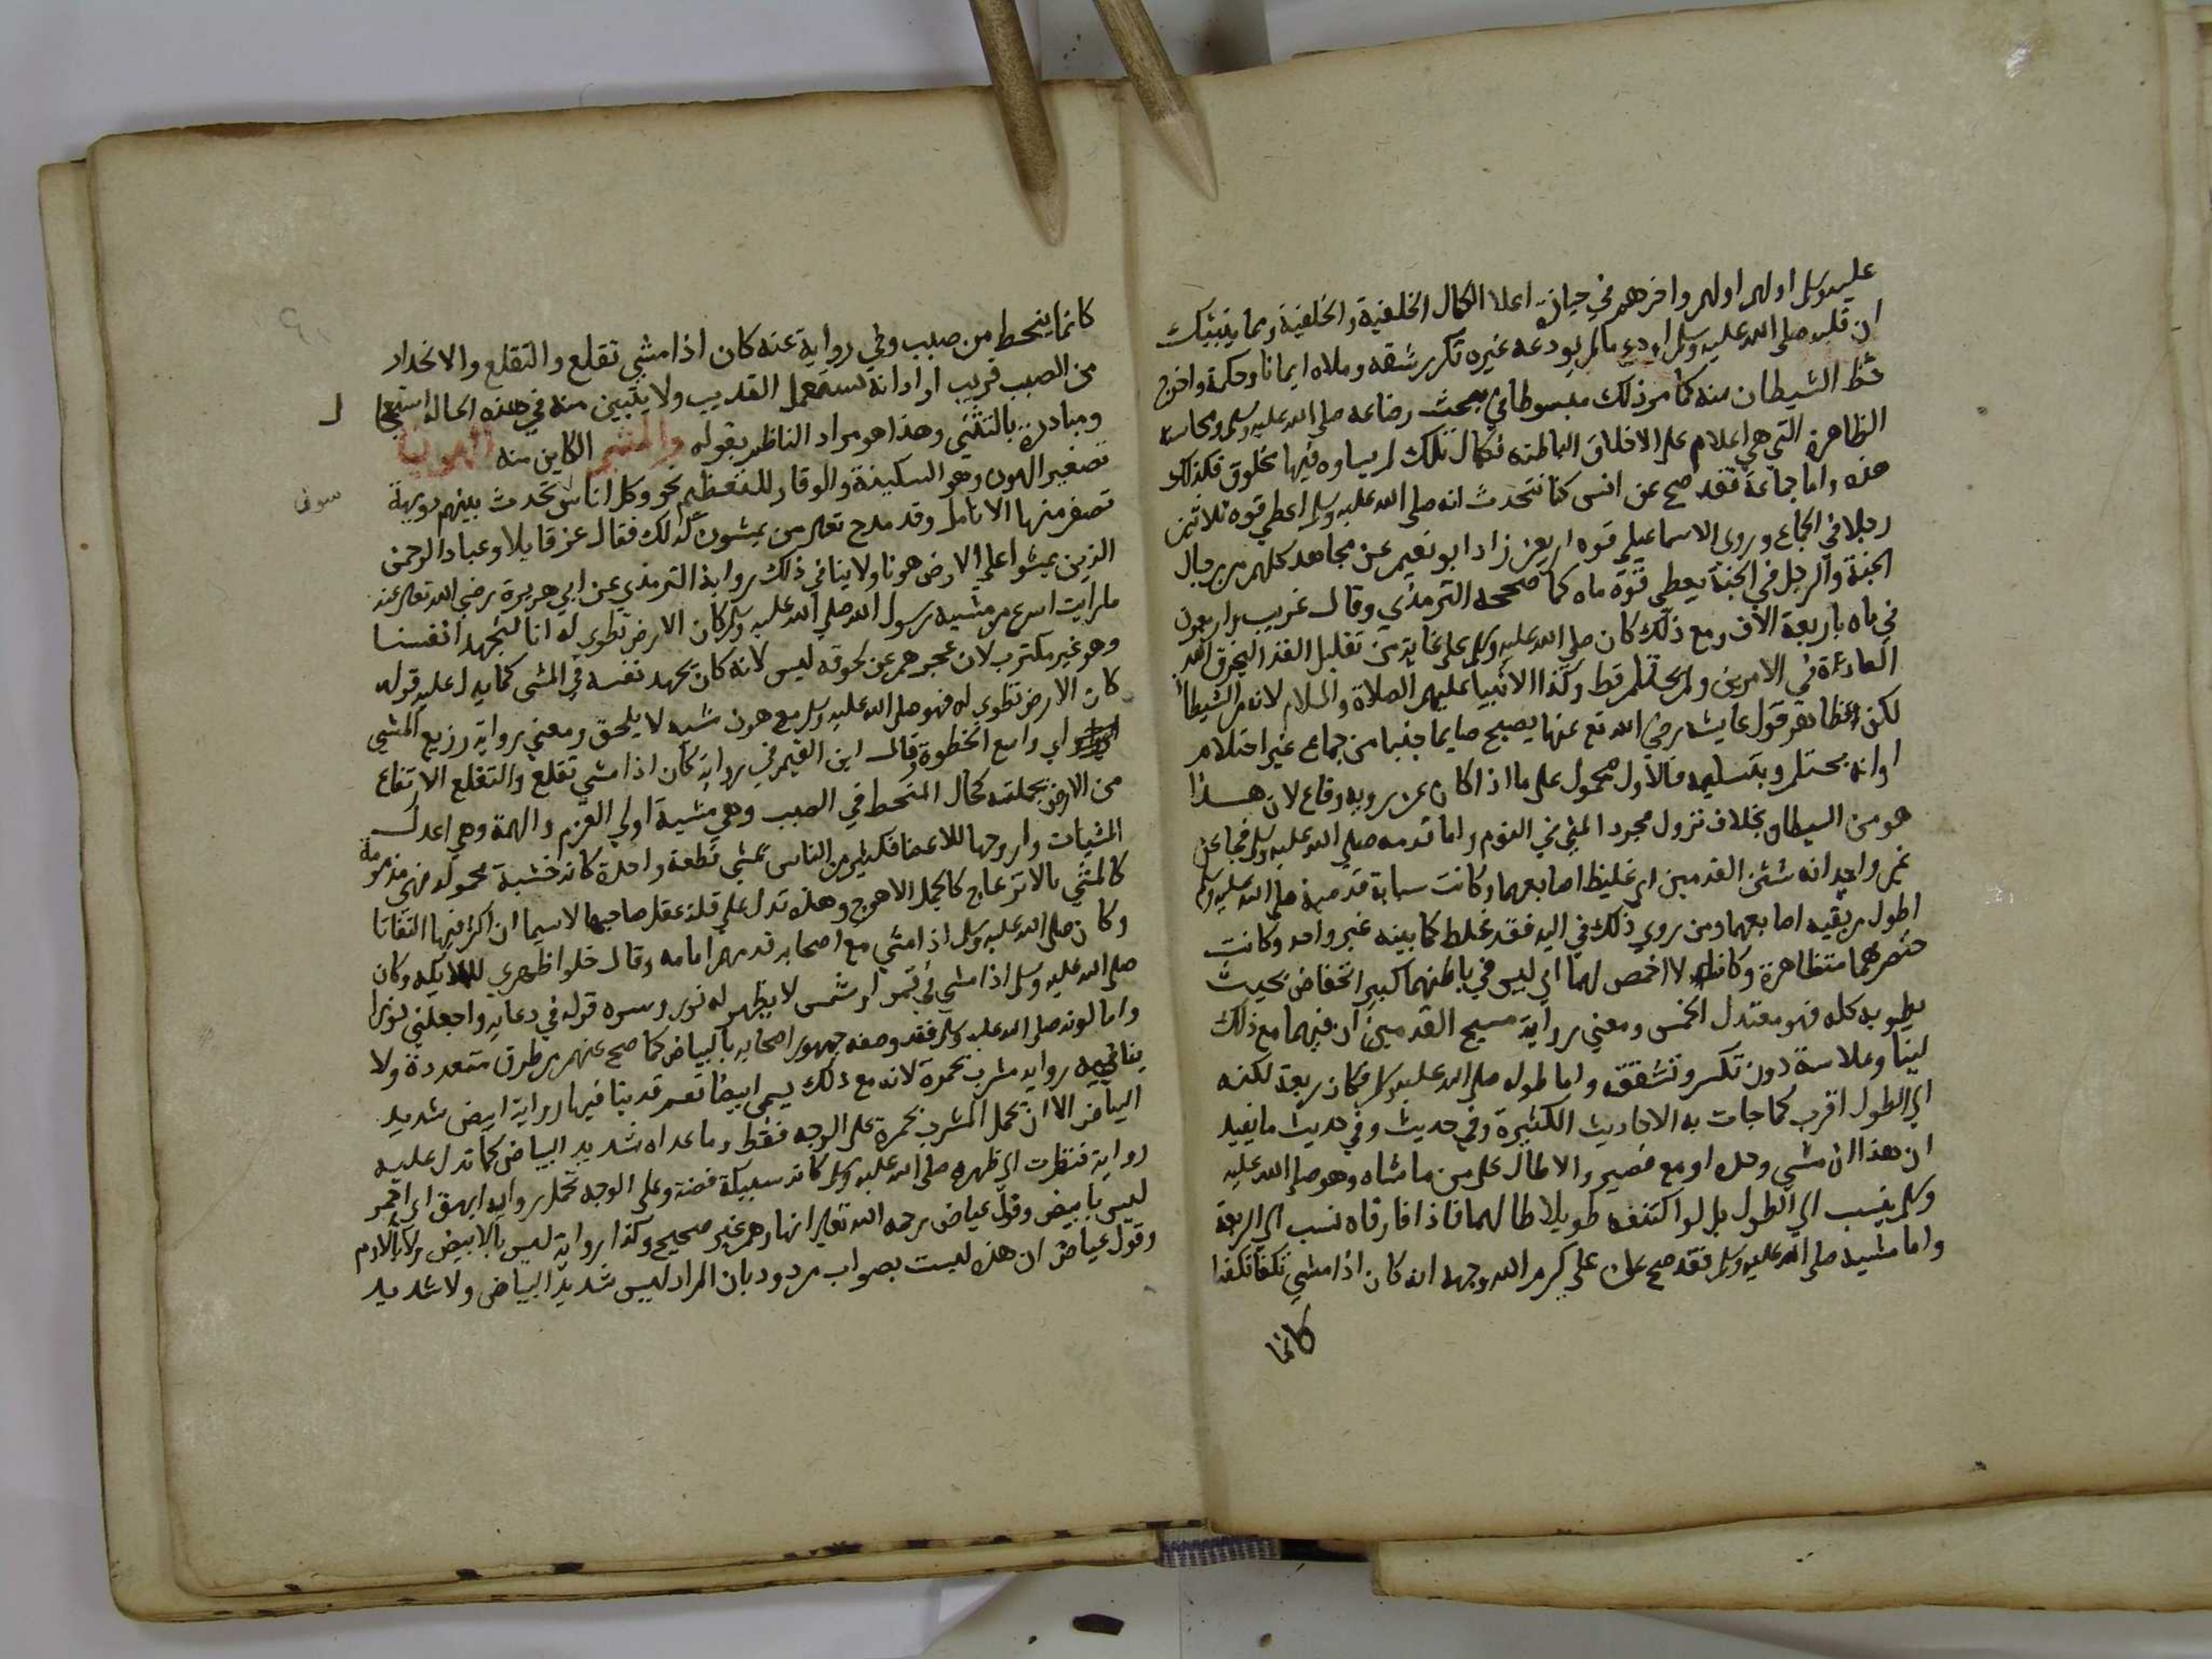 عليه وسلم اولهم اولهم واخرهم في حيازة اعلا الكمال الخلقية والخلقية ومما ينبيك
ان قلبه صلى الله عليه وسلم اودع مالم يودعه غيره تكرر شقه وملاه ايمانا وحكمة واخرج
حظ الشيطان منه كما مر ذلك مبسوطا في مبحث رضاعه صلى الله عليه وسلم ومحاسنه
الظاهرة التي هي اعلام على الاخلاق الباطنه فكمال تلك لم يساوه فيها مخلوق فكذلك
هذه واما جماعة فقد صح عن انس كنا نتحدث انه صلى الله عليه وسلم اعطي قوة ثلاثين
رجلا في الجماع وروى الاسماعيلي قوة اربعين زاد ابو نعيم عن مجاهد كلهم من رجال
الجنة والرجل في الجنة يعطي قوة ماه كما صححه الترمذي وقال غريب واربعون
في ماه باربعة الاف ومع ذلك كان صلى الله عليه وسلم على غاية من تقليل الغذا ليخرق الله
العادة في الامرين ولم يحتلم قط وكذا الانبيا عليهم الصلاة والسلام لانه من الشيطان
لكن ظاهر قول عايشه رضي الله تع عنها يصبح صايما جنبا من جماع غير احتلام
اوانه يحتلم وبتسليمه فالاول محمول على ما اذا كان عن رويه وقاع لان هذا
هو من الشيطان بخلاف نزول مجرد المني في النوم واما قدمه صلى الله عليه وسلم فجا عن
غير واحد انه شثن القدمين اي غليظ اصابعهما وكانت سبابة قدميه صلى الله عليه وسلم
اطول من بقيه اصابعهما ومن روي ذلك في اليد فقد غلط كما بينه غير واحد وكانت
خنصرهما متظاهرة وكانت لا اخمص لهما اي ليس في باطنهما كبير انخفاض بحيث
يطو به كله فهو معتدل الخمس ومعني رواية مسيح القدمين ان فيهما مع ذلك
لينا وملاسة دون تكسر وتشقق واما طوله صلى الله عليه وسلم فكان ربعة لكنه
الي الطول اقرب كما جات به الاحاديث الكثيرة وفي حديث وفي حديث ما يفيد
ان هذا ان مشي وحده او مع قصير والا طال على من ماشاه وهو صلى الله عليه
وسلم ينسب الي الطول بل لو اكتنفه طويلا طالهما فاذا فارقاه نسب الي الربعة
واما مشيه صلى الله عليه وسلم فقد صح عن علي كرم الله وجهه انه كان اذا مشي تكفا تكفوا
كانما
كانما ينحط من صبب وفي رواية عنه كان اذا مشي تقلع والتقلع والانحدار
من الصبب قريب اراد انه يستعمل القديب ولا يتبين منه في هذه الحاله استعجا
ل
ومبادرة بالتثني وهذا هو مراد الناظم بقوله والمشي الكاين منه الهوينا
تصغير الهون وهو السكينة والوقار للتعظيم نحو وكل اناس تحدث بينهم دويهة
سوف
تصفر منها الانامل وقد مدح تعالى من يمشون كذلك فقال عز قايلا وعباد الرحمن
الذين يمشوا على الارض هونا ولا ينافي ذلك رواية الترمذي عن ابي هريرة رضي الله تعالى عنه
مارايت اسرع من مشيه رسول الله صلى الله عليه وسلم كان الارض تطوي له انا لنجهد انفسنا
وهو غير مكترب لان عجزهم عن لحوقه ليس لانه كان يجهد نفسه في المشي كما يدل عليه قوله
كان الارض تطوي له فهو صلى الله عليه وسلم مع هون مشيه لا يلحق ومعني رواية رزيع المشي
اي واسع الخطوة وقال ابن القيم في رواية كان اذا مشي تقلع والتقلع الارتفاع
من الارض بجملته كحال المنحط في الصبب وهي مشية اولي العزم والهمة وهي اعدل
المشيات واروحها للاعضا فكثير من الناس يمشي قطعة واحدة كانه خشبة محموله فهي مذمومة
كالمشي بالانزعاج كالجمل الاهوج وهذه تدل علي قلة عقل صاحبها لاسيما ان اكثر فيها التفاتا
وكان صلى الله عليه وسلم اذا مشي مع اصحابه قدمهم امامه وقال خلوا ظهري للملايكه وكان
صلى الله عليه وسلم اذا مشي في قمر او شمس لا يظهر له نور وسره قوله في دعايه واجعلني نورا
واما لونه صلى الله عليه وسلم فقد وصفه جمهور اصحابه بالبياض كما صح عنهم من طرق متعددة ولا
ينافيه روايه مشرب بحمرة لانه مع ذلك يسمي ابيضا نعم قد ينافيها رواية ابيض شديد
البياض الا ان تحمل المشرب بحمرة على الوجه فقط وما عداه شديد البياض كما تدل عليه
رواية فنظرت الي ظهره صلى الله عليه وسلم كانه سبيكة فضة وعلى الوجه تحمل روايه ابهق اي احمر
ليس بابيض وقول عياض رحمه الله تعالى انها وهم غير صحيح وكذا رواية ليس بالابيض ولا بالادم
وقول عياض ان هذه ليست بصواب مردود بان المراد ليس شديد البياض ولا شديد